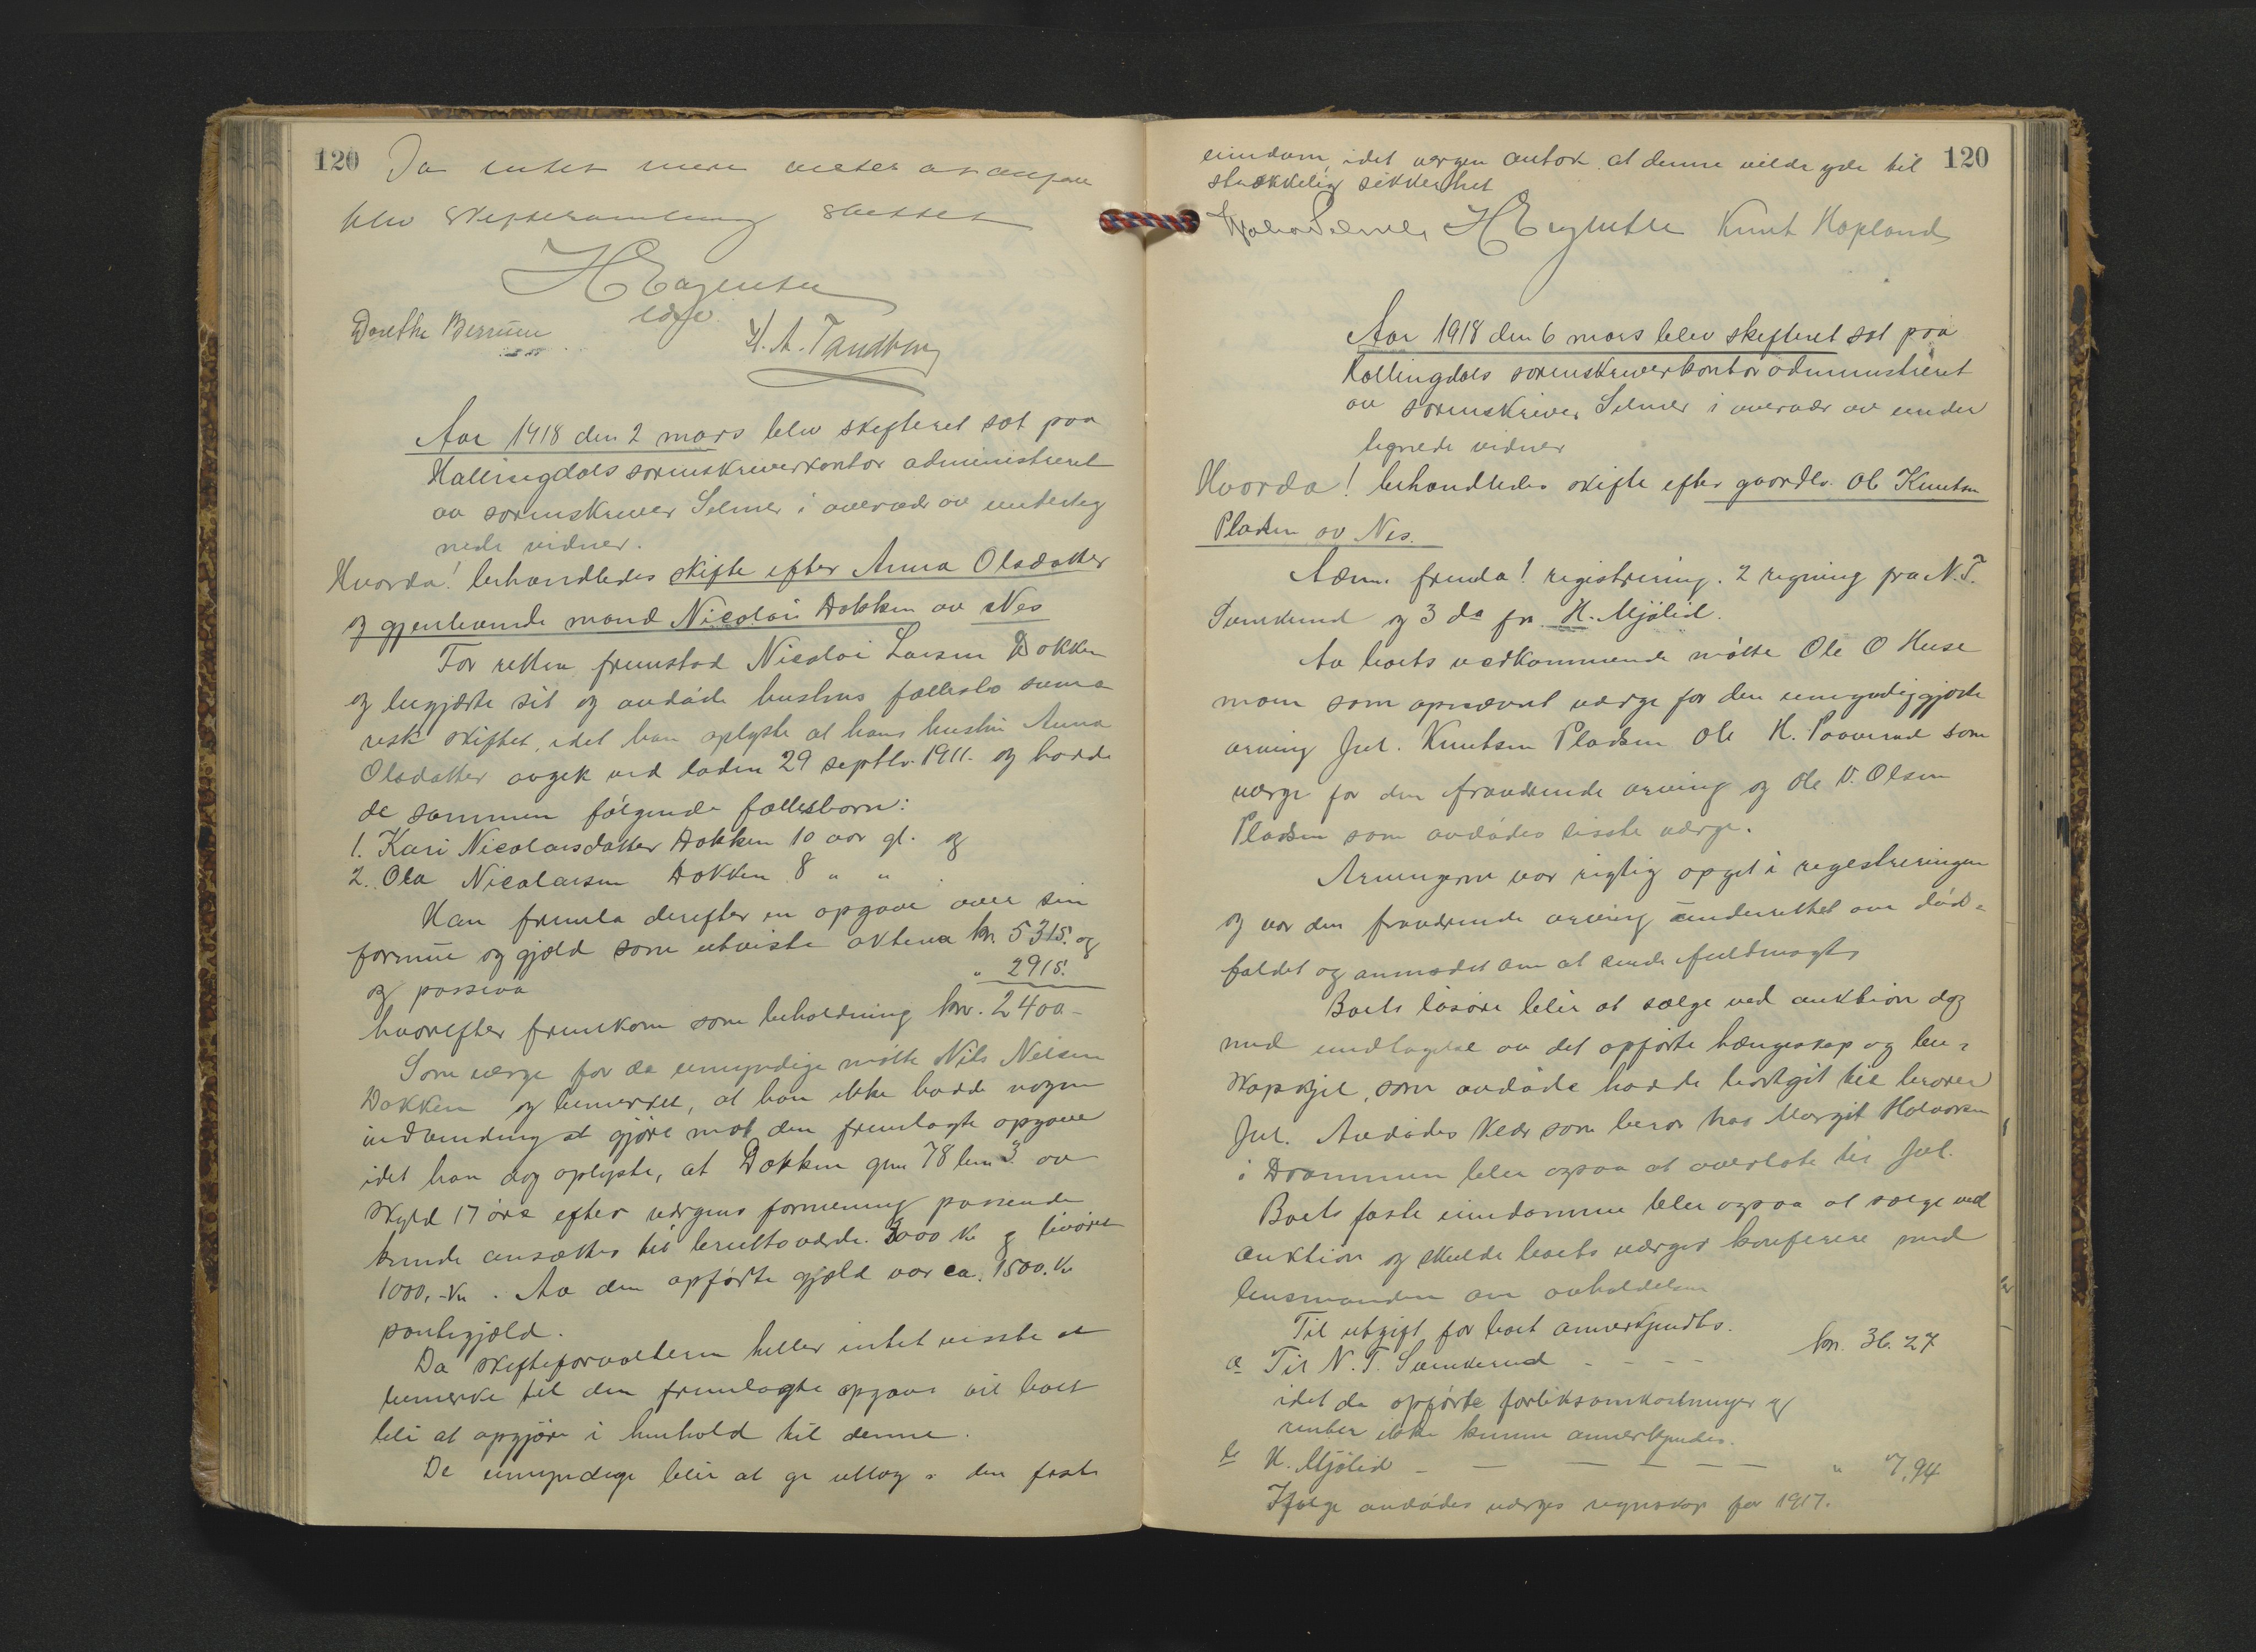 120
Da intet mere
blev skiftesamling sluttet
Dorethe Berrum
H. A. Tandberg
Aar 1918 den 2 mars blev skifteret sat paa
Hallingdals sorenskriverkontor administreret
av sorenskriver Selmer i overvær av underteg
nede vidner.
Hvorda! behandledes skifte efter Anna Olsdatter
og gjenlevende mand Nicolai Dokken av Nes
For retten fremstod Nicolai Larsen Dokken
og begjærte sit og avdøde hustrus fællesbo summa
risk skiftet, idet han oplyste at hans hustru Anna
Olsdatter avgik ved døden 29 septbr. 1911. og hadde
de sammen følgende fællesbørn:
1. Kari Nicolaisdatter Dokken 10 aar gl. og
2. Ola Nicolaisen Dokken 8 " "
Han fremla derefter en opgave over sin
formue og gjæld som utviste aktiva kr. 5315. og
og passiva " 2915.
hvorefter fremkom som beholdning kr. 2400-
Som værge for de umyndige møtte Nils Nilsen
Dokken og bemerket, at han ikke hadde nogen
indvending at gjøre mot den fremlagte opgave
idet han dog oplyste, at Dokken gnr 78 bnr 3 av
skyld 17 øre efter værgens formening passende
kunde ansættes til bruttoværdi 3000 kr og løsøret
1000,- kr. Av den opførte gjæld var ca. 1500. kr
pantegjæld.
Da skifteforvalteren heller intet visste at
bemerke til den fremlagte opgave vil boet
bli at opgjøre i henhold til denne.
De umyndige blir at gi utlæg i den faste
120
eiendom, idet værgen antok at denne vilde yde til
strækkelig sikkerhet
Knut Hapland
Aar 1918 den 6 mars blev skifteret sat paa
Hallingdals sorenskriverkontor administreret
av sorenskriver Selmer i overvær av under
tegnede vidner
Hvorda! behandledes skifte efter gaardbr. Ole Knutsen
Pladsen av Nes.
Adm. fremla! registrering. 2 regning fra N.T.
Svenkerud og 3 do fra H. Mjølid.
Av boets vedkommende møtte Ole O Huse
moen som opnævnt værge for den umyndiggjorte
arving Jul. Knutsen Pladsen Ole K. som
værge for den fraværende arving og Ole O. Olsen
Pladsen som avdødes sisste værge.
Arvingerne var rigtig opgit i registreringen
og var den fraværende arving underrettet om døds-
faldet og anmodet om at sende fuldmagt
Boets løsøre blir at sælge ved auktion dog
med undtagelse av det opførte hængeskap og
som avdøde hadde bortgit til broren
Jul. Avdødes klær som beror hos Margit Halvorsen
i Drammen blir ogsaa at overlate til Jul.
Boets faste eiendomme blir ogsaa at sælge ved
auktion og skulde boets værger konferere med
lensmanden om avholdelsen
Til utgift for boet anerkjendtes.
a Til N. T. Svenkerud - - - - kr. 36.27
idet de opførte forliksomkostninger og
renter ikke kunne anerkjendes.
b H. Mjølid - - - - - " 7,94
Ifølge avdødes værges regnskap for 1917.